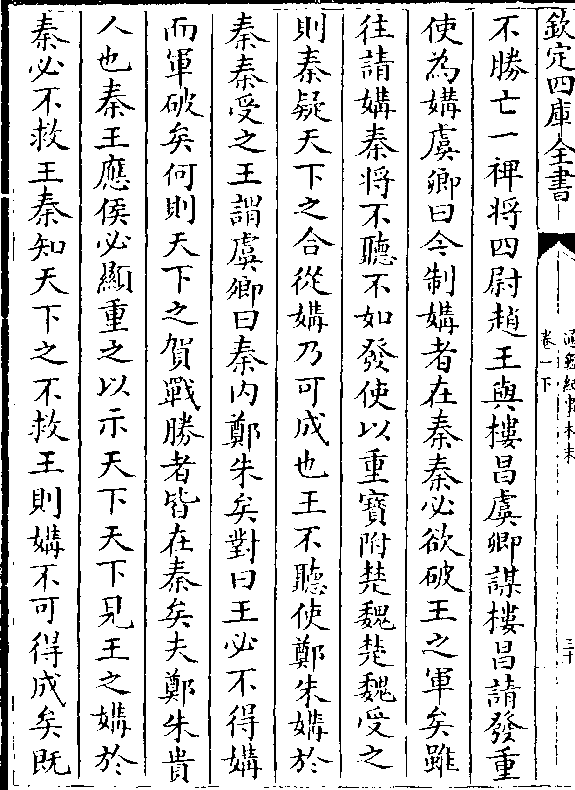 欽定四庫全書
通鑑紀事本末
卷一下
三十
不勝亡一裨將四尉趙王與樓昌虞卿謀樓昌請發重
使為媾虞卿曰今制媾者在秦秦必欲破王之軍矣雖
往請媾秦將不聽不如發使以重寶附楚魏楚魏受之
則秦疑天下之合從媾乃可成也王不聽使鄭朱媾於
秦秦受之王謂虞卿曰秦内鄭朱矣對曰王必不得媾
而軍破矣何則天下之賀戰勝者皆在秦矣夫鄭朱貴
人也秦王應侯必顯重之以示天下天下見王之媾於
秦必不救王秦知天下之不救王則媾不可得成矣既